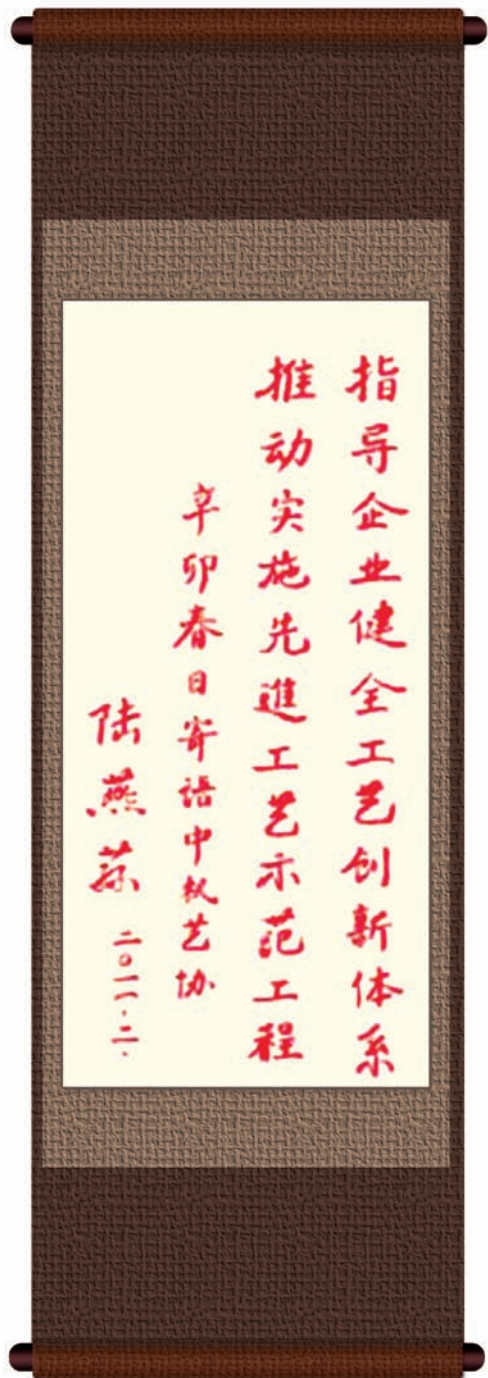 指导企业健全工艺创新体系
推动实施先進工艺示范工程
辛卯春日寄语中机艺协
陆燕荪 二〇一一·二·